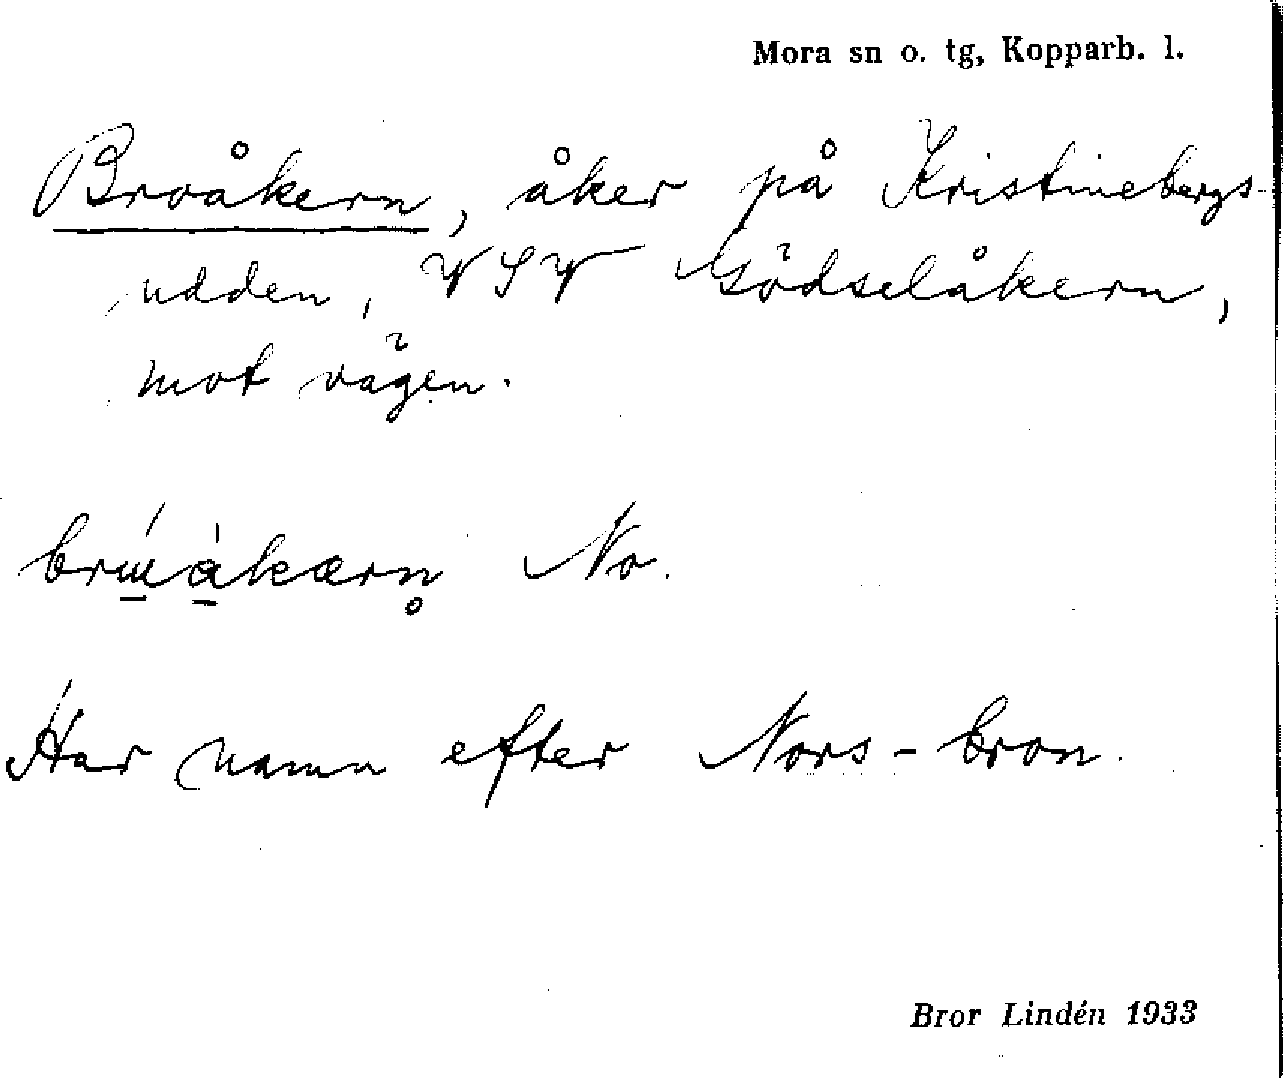 Mora sn o. tg, Kopparb. l.
Broåkern, åker på Kristinebergs-
udden, VSV Gödselåkern,
mot vägen.
No.
Har namn efter Nors-bron.
Bror Lindén 1933